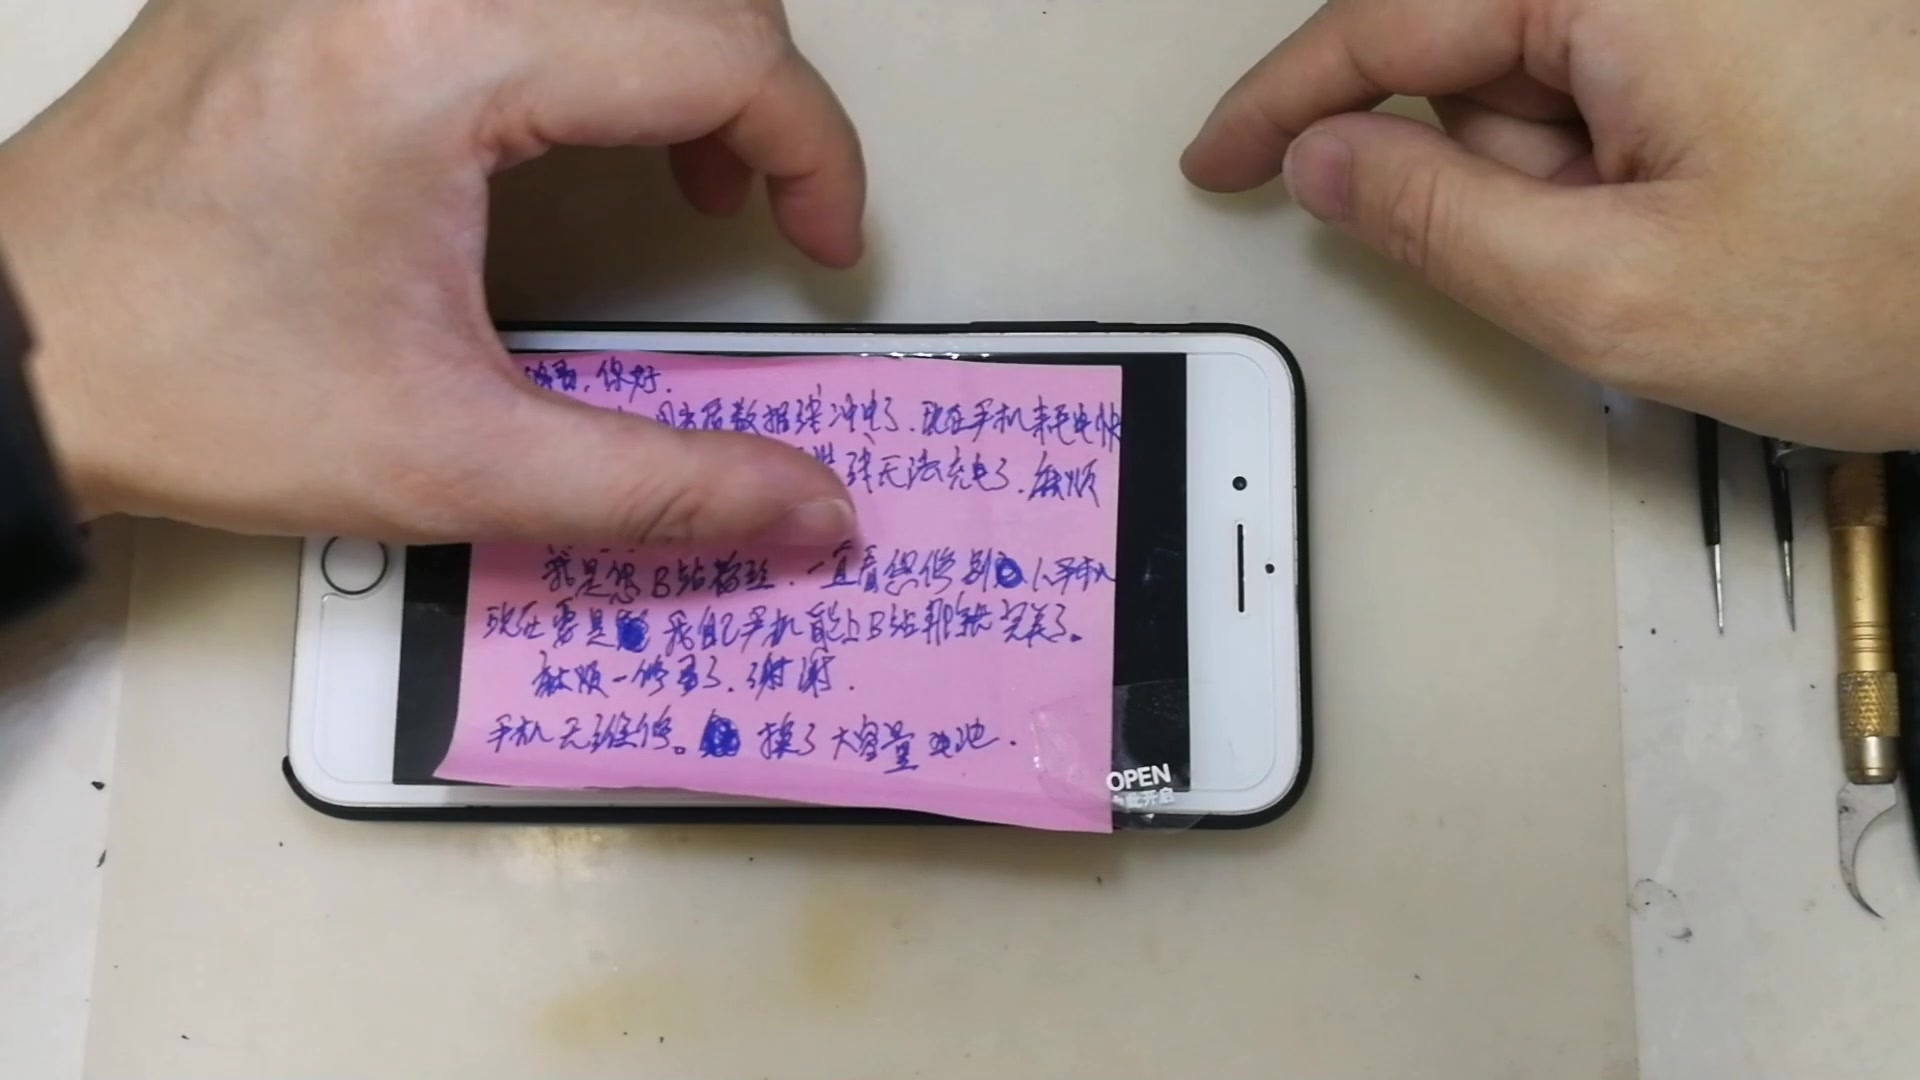 修哥，你好．
数据线冲电了．现在手机耗电快
线无法充电了．麻烦
我是您B站粉丝．一直看您修别人手机
现在要是我自己手机能上B站那就完美了。
麻烦一修哥了．谢谢．
手机无维修。换了大容量电池．
OPEN
此开启